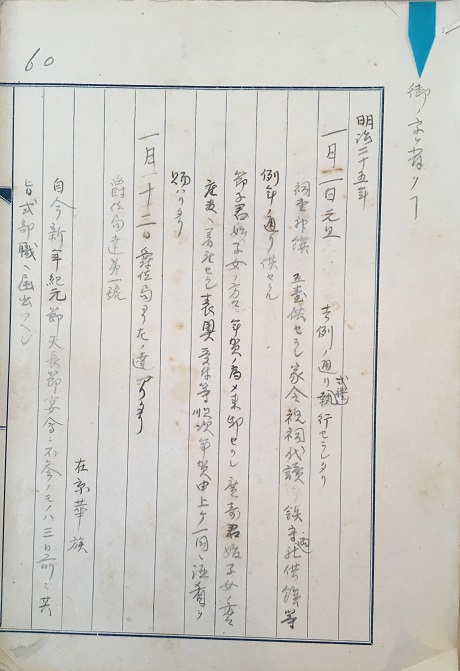 60
御
明治二十五年
一月一日元旦 吉例ノ通リ式禮執行セラレタリ
祠堂神饌 五壹供セラレ家令祝詞代讀 両社供饌等
例年ノ通リ供セラル
節子君始子女ノ方々年賀ノ為メ東邸セラレ 君始子女ノ方々
表奥 等順次年賀申上ケ一同ニ酒肴ヲ
賜ハリタリ
一月十二日爵位局ヨリ左ノ達アリタリ
爵位局達第一號
在京華族
自今新年紀元節天長節宴會ニ不参ノモノハ三日前ニ其
旨式部職ニ届出ツヘシ